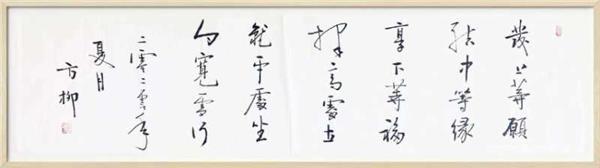 發上等願
結中等緣
享下等福
擇高處立
就平處坐
向寬處行
二零二零年
夏月
方柳